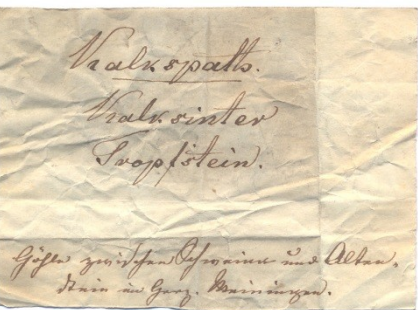 Kalkspath.
Kalksinter
Tropfstein.
Höhle zwischen Schweina und Alten-
stein in Herz. Meiningen.